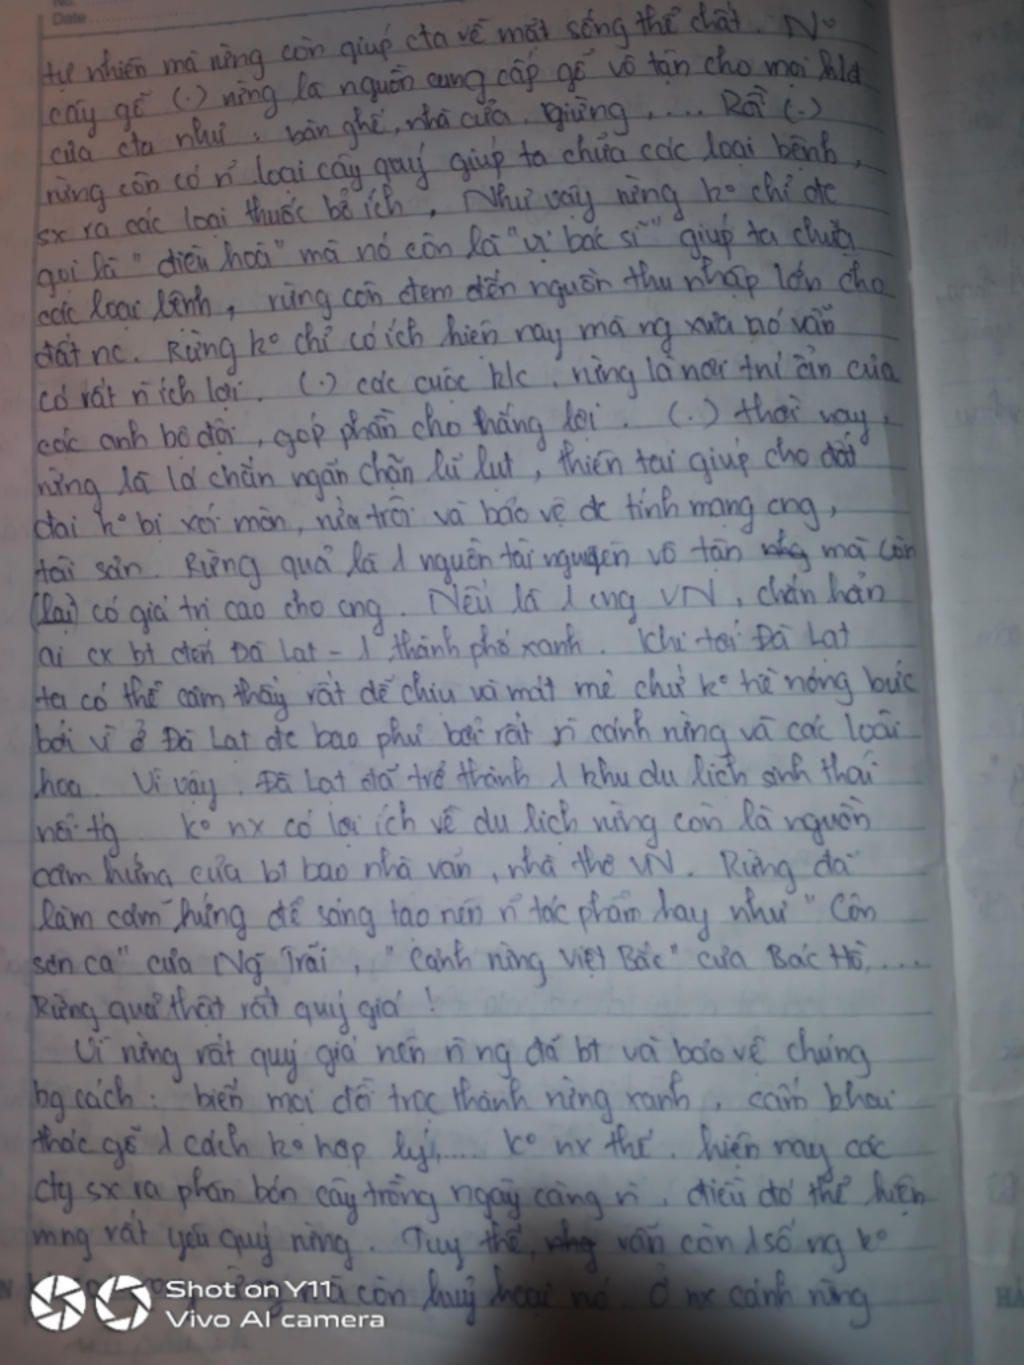 Date
tự nhiên mà rừng còn giúp cta về mặt sống thể chất. N°
cây gỗ (.) rừng là nguồn cung cấp gỗ vô tận cho mọi
của cta như: bàn ghế, nhà cửa, giường, .... Rồi (.)
rừng còn có n~ loại cây quý giúp ta chữa các loại bệnh,
sx ra các loại thuốc bổ ích. Như vậy rừng k° chỉ đc
gọi là "điều hoà" mà nó còn là "vị bác sĩ" giúp ta chữa
các loại bệnh, rừng còn đem đến nguồn thu nhập lớn cho
đất nc. Rừng k° chỉ có ích hiện nay mà ng xưa nó vẫn
có rất n~ ích lợi. (.) các cuộc k/c, rừng là nơi trú ẩn của
các anh bộ đội, góp phần cho thắng lợi. (.) thời nay,
rừng là lá chắn ngăn chặn lũ lụt, thiên tai giúp cho đất
đai k° bị xói mòn, rửa trôi và bảo vệ đc tính mạng cng,
tài sản. Rừng quả là 1 nguồn tài nguyên vô tận nhg mà còn
(lại) có giá trị cao cho cng. Nếu là 1 cng VN, chắn hẳn
ai cx bt đến Đà Lạt - 1 thành phố xanh. Khi tới Đà Lạt
ta có thể cảm thấy rất dễ chịu và mát mẻ chứ k° hề nóng bức
bởi vì ở Đà Lạt đc bao phủ bởi rất n~ cánh rừng và các loài
hoa. Vì vậy, Đà Lạt đã trở thành 1 khu du lịch sinh thái
nổi tg k° nx có lợi ích về du lịch rừng còn là nguồn
cảm hứng của bt bao nhà văn, nhà thơ VN. Rừng đã
làm cảm hứng để sáng tạo nên n~ tác phẩm hay như "Côn
sơn ca" của Ng~ Trãi, "Cảnh rừng Việt Bắc" của Bác Hồ,....
Rừng quả thật rất quý giá!
Vì rừng rất quý giá nên n~ ng đã bt và bảo vệ chúng
bg cách: biến mọi đồi trọc thành rừng xanh, cấm khai
thác gỗ 1 cách k° hợp lý,.... k° nx thế, hiện nay các
cty sx ra phân bón cây trồng ngày càng n~, điều đó thể hiện
mng rất yêu quý rừng. Tuy thế, nhg vẫn còn 1 số ng k°
mà còn huỷ hoại nó. Ở nx cánh rừng
Shot on Y11
Vivo AI camera